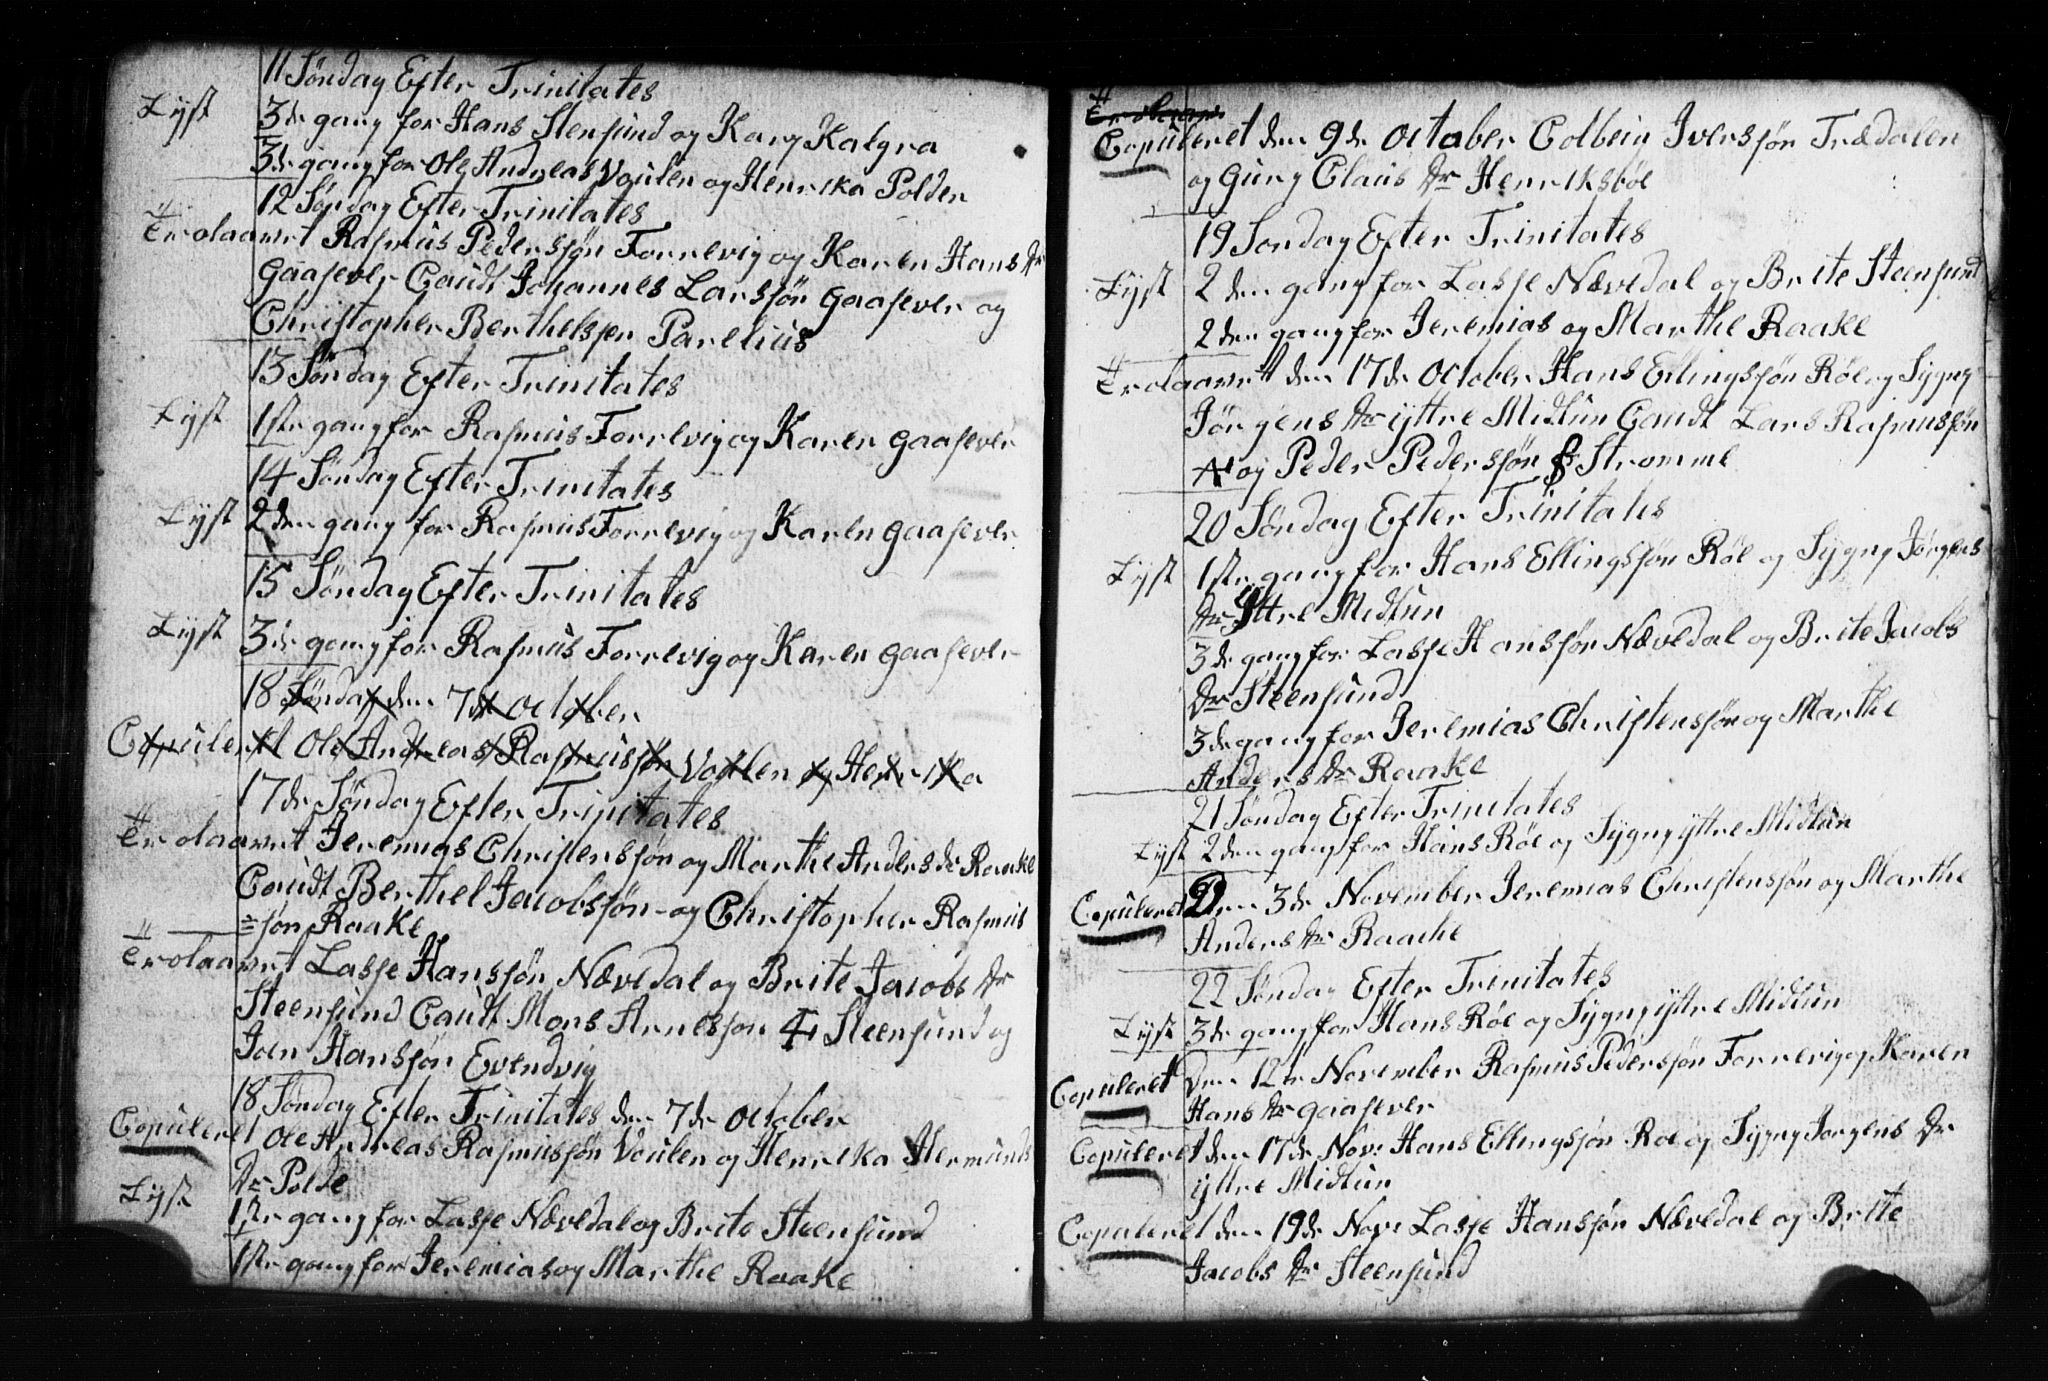 11 Søndag Efter Trinitates
Lyst 3de gang for Hans Stensund og Kary Kalgra
3de gang for Ole Andreas Voulen og Henrika Polden
12 Søndag Efter Trinitates
Trolaavet Rasmus Pederssøn Forrevig og Karen Hans Dr
Gaasever Caudt Johannes Larssøn Gaasever og
Christopher Berthelssen Parelius
13 Søndag Efter Trinitates
Lyst 1ste gang for Rasmus Forrevig og Karen Gaasever
14 Søndag Efter Trinitates
Lyst 2den gang for Rasmus Forrevig og Karen Gaasever
15 Søndag Efter Trinitates
Lyst 3de gang for Rasmus Forrevig og Karen Gaasever
18 Søndag den 7de October
Copuleret Ole Andreas Rasmussøn Voulen og Henrika
17de Søndag Efter Trinitates
Trolaavet Jeremias Christenssøn og Marthe Anders dr Raake
Caudt Berthel Jacobssøn og Christopher Rasmus
=søn Raake
Trolaavet Lasse Hanssøn Nævedal og Brite Jacobs Dr
Steensund Caudt Mons Arnessøn Steensund og
Joen Hanssøn Evendvig
18 Søndag Efter Trinitates den 7de October
Copuleret Ole Andreas Rasmussøn Voulen og Henrika Hermunds
Dr Polde
Lyst 1ste gang for Lasse Nævedal og Brite Steensund
1ste gang for Jeremias og Marthe Raake
Trolaavet
Copuleret den 9de October Colbein Iverssøn Trædalen
og Gury Claus Dr Henriksbøe
19 Søndag Efter Trinitates
Lyst 2den gang for Lasse Nævedal og Brite Steensund
2den gang for Jeremias og Marthe Raake
Trolaavet den 17de October Hans Ellingssøn Røe og Sygny
Jørgens Dr yttre Midtun Caudt Lars Rasmussøn
og Peder Pederssøn Strømme
20 Søndag Efter Trinitates
Lyst 1ste gang for Hans Ellingssøn Røe og Sygny Jørgens
Dr Yttre Midtun
3de gang for Lasse Hanssøn Nævedal og Brite Jacobs
Dr Steensund
3de gang for Jeremias Christenssøn og Marthe
Anders Dr Raake
21 Søndag Efter Trinitates
Lyst 2den gang for Hans Røe og Sygny yttre Midtun
Copuleret Den 3de November Jeremias Christenssøn og Marthe
Anders Dr Raache
22 Søndag Efter Trinitates
Lyst 3de gang for Hans Røe og Sygny yttre Midtun
Copuleret Den 12te November Rasmus Pederssøn Forrevig og Karen
Hans Dr Gaasever
Copuleret den 17de Nov: Hans Ellingssøn Røe og Sygny Jørgens Dr
yttre Midtun
Copuleret den 19de Nov: Lasse Hanssøn Nævedal og Brite
Jacobs Dr Steensund